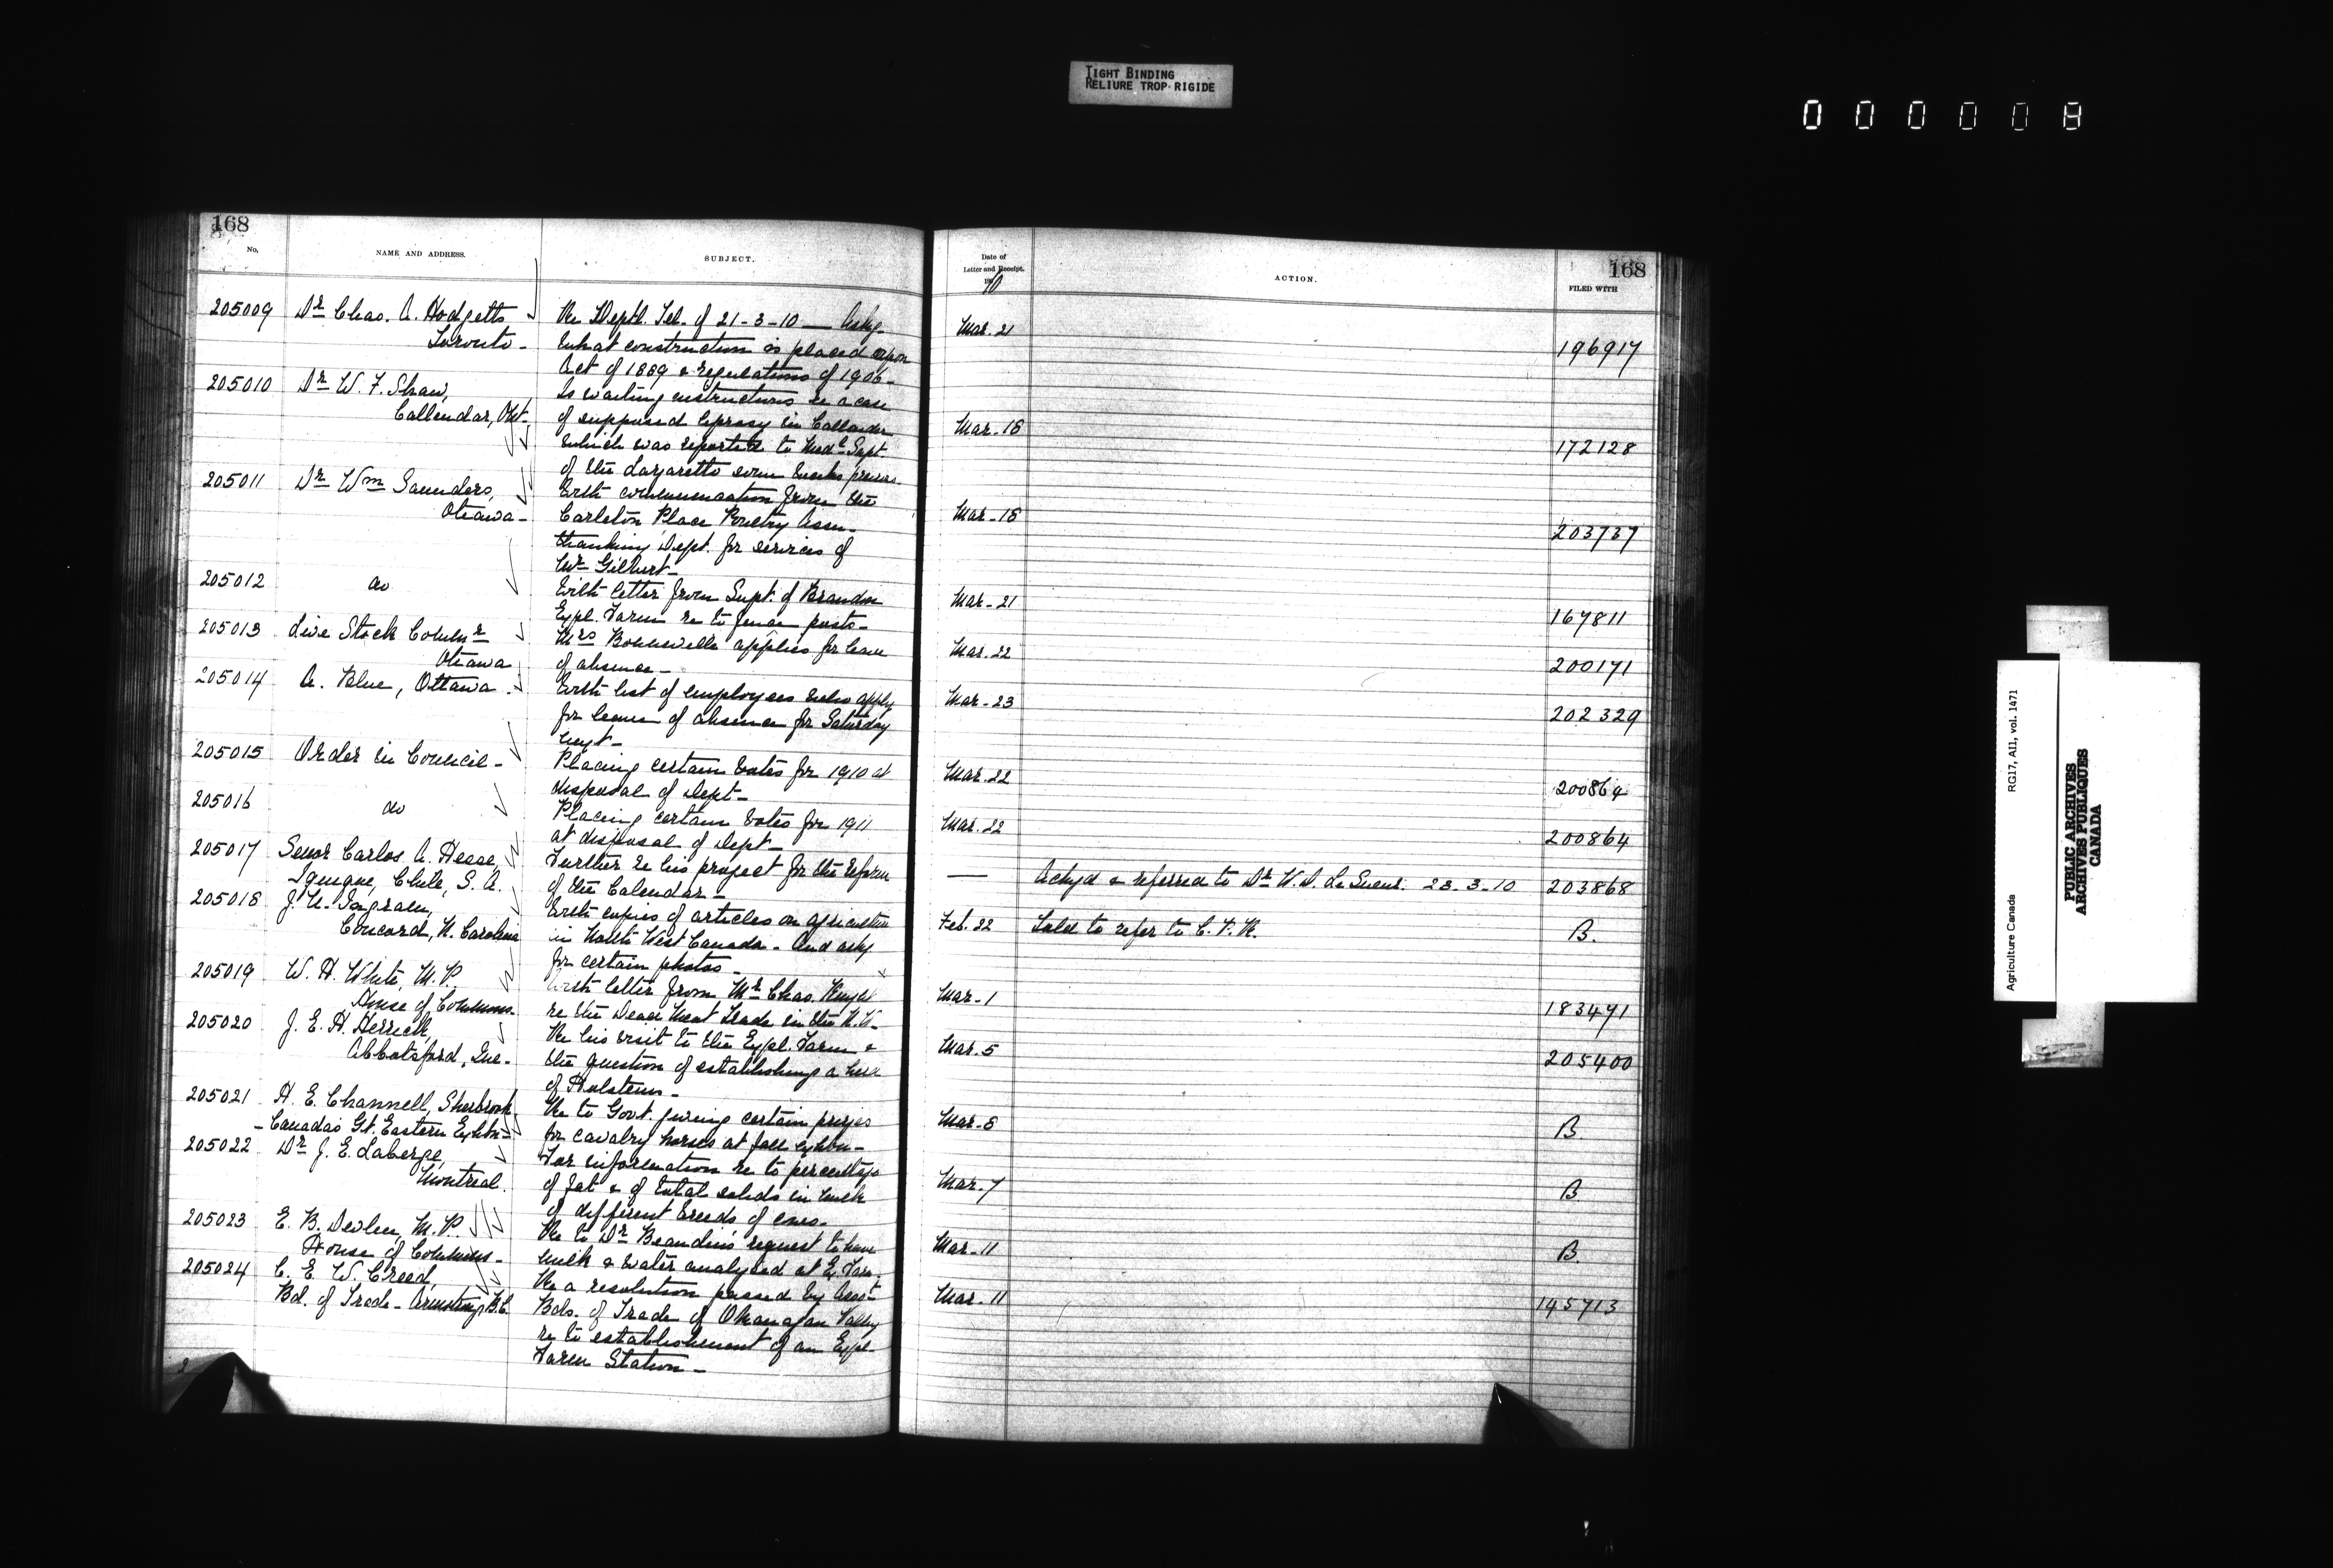 TIGHT BINDING
RELIURE TROP RIGIDE
000008
168
No.
NAME AND ADDRESS.
SUBJECT.
205009
Dr Chas. A. Hodgetts
Toronto -
Re Deptl. Tel. of 21-3-10 — Asks
what construction is placed upon
Act of 1869 & regulations of 1906 -
205010
Dr W. F. Shaw,
Callendar, Ont.
Is waiting instructions re a case
of supposed leprosy in Callander
which was reported to Medl Supt.
of the Lazaretto some weeks previous
205011
Dr Wm Saunders,
Ottawa -
With communication from the
Carleton Place Poultry Assn.
thanking Dept. for services of
Mr Gilbert -
205012
do
With letter from Supt. of Brandon
Expl. Farm re to fence posts -
205013
Live Stock Commr
Ottawa
Mrs applies for leave
of absence -
205014
A. Blue, Ottawa -
With list of employees who apply
for leave of absence for Saturday
next -
205015
Order in Council -
Placing certain votes for 1910 at
disposal of Dept -
205016
do
Placing certain votes for 1911
at disposal of Dept -
205017
Senor Carlos A. Hesse,
Iquique, Chile, S. A.
Further re his project for the reform
of the Calendar -
205018
J. A. Ingram,
Concord, N. Carolina
With copies of articles on agriculture
in North West Canada - And asks
for certain photos -
205019
W. H. White, M. P.
House of Commons -
With letter from Mr Chas.
re the Dead Meat Trade in the N. W.
205020
J. E. H. Herrick,
Abbotsford, Que -
Re his visit to the Expl. Farm &
the question of establishing a herd
of Holsteins -
205021
H. E. Channell, Sherbrooke
- Canada's Gt. Eastern Exhbn -
Re to Govt. giving certain prizes
for cavalry horses at fall exhbn -
205022
Dr J. E. Laberge,
Montreal.
For information re to percentage
of fat & of total solids in milk
of different breeds of cows -
205023
E. B. Devlin, M. P.
House of Commons -
Re to Dr Beaudin's request to have
milk & water analysed at Ex. Farm
205024
C. E. W. Creed,
Bd. of Trade - Armstrong, B.C.
Re a resolution passed by Assoc.
Bds. of Trade of Okanagan Valley
re to establishment of an Expl.
Farm Station -
Date of
Letter and Receipt.
1910
ACTION.
168
FILED WITH
Mar. 21
196917
Mar. 18
172128
Mar. 18
203737
Mar. 21
167811
Mar. 22
200171
Mar. 23
202329
Mar. 22
200864
Mar. 22
200864
—
Ackgd & referred to Dr W. D. LeSueur. 23-3-10
203868
Feb. 22
Told to refer to C. P. R.
B.
Mar. 1
183471
Mar. 5
205400
Mar. 8
B.
Mar. 7
B.
Mar. 11
B.
Mar. 11
145713
Agriculture Canada
RG17, AII, vol. 1471
PUBLIC ARCHIVES
ARCHIVES PUBLIQUES
CANADA